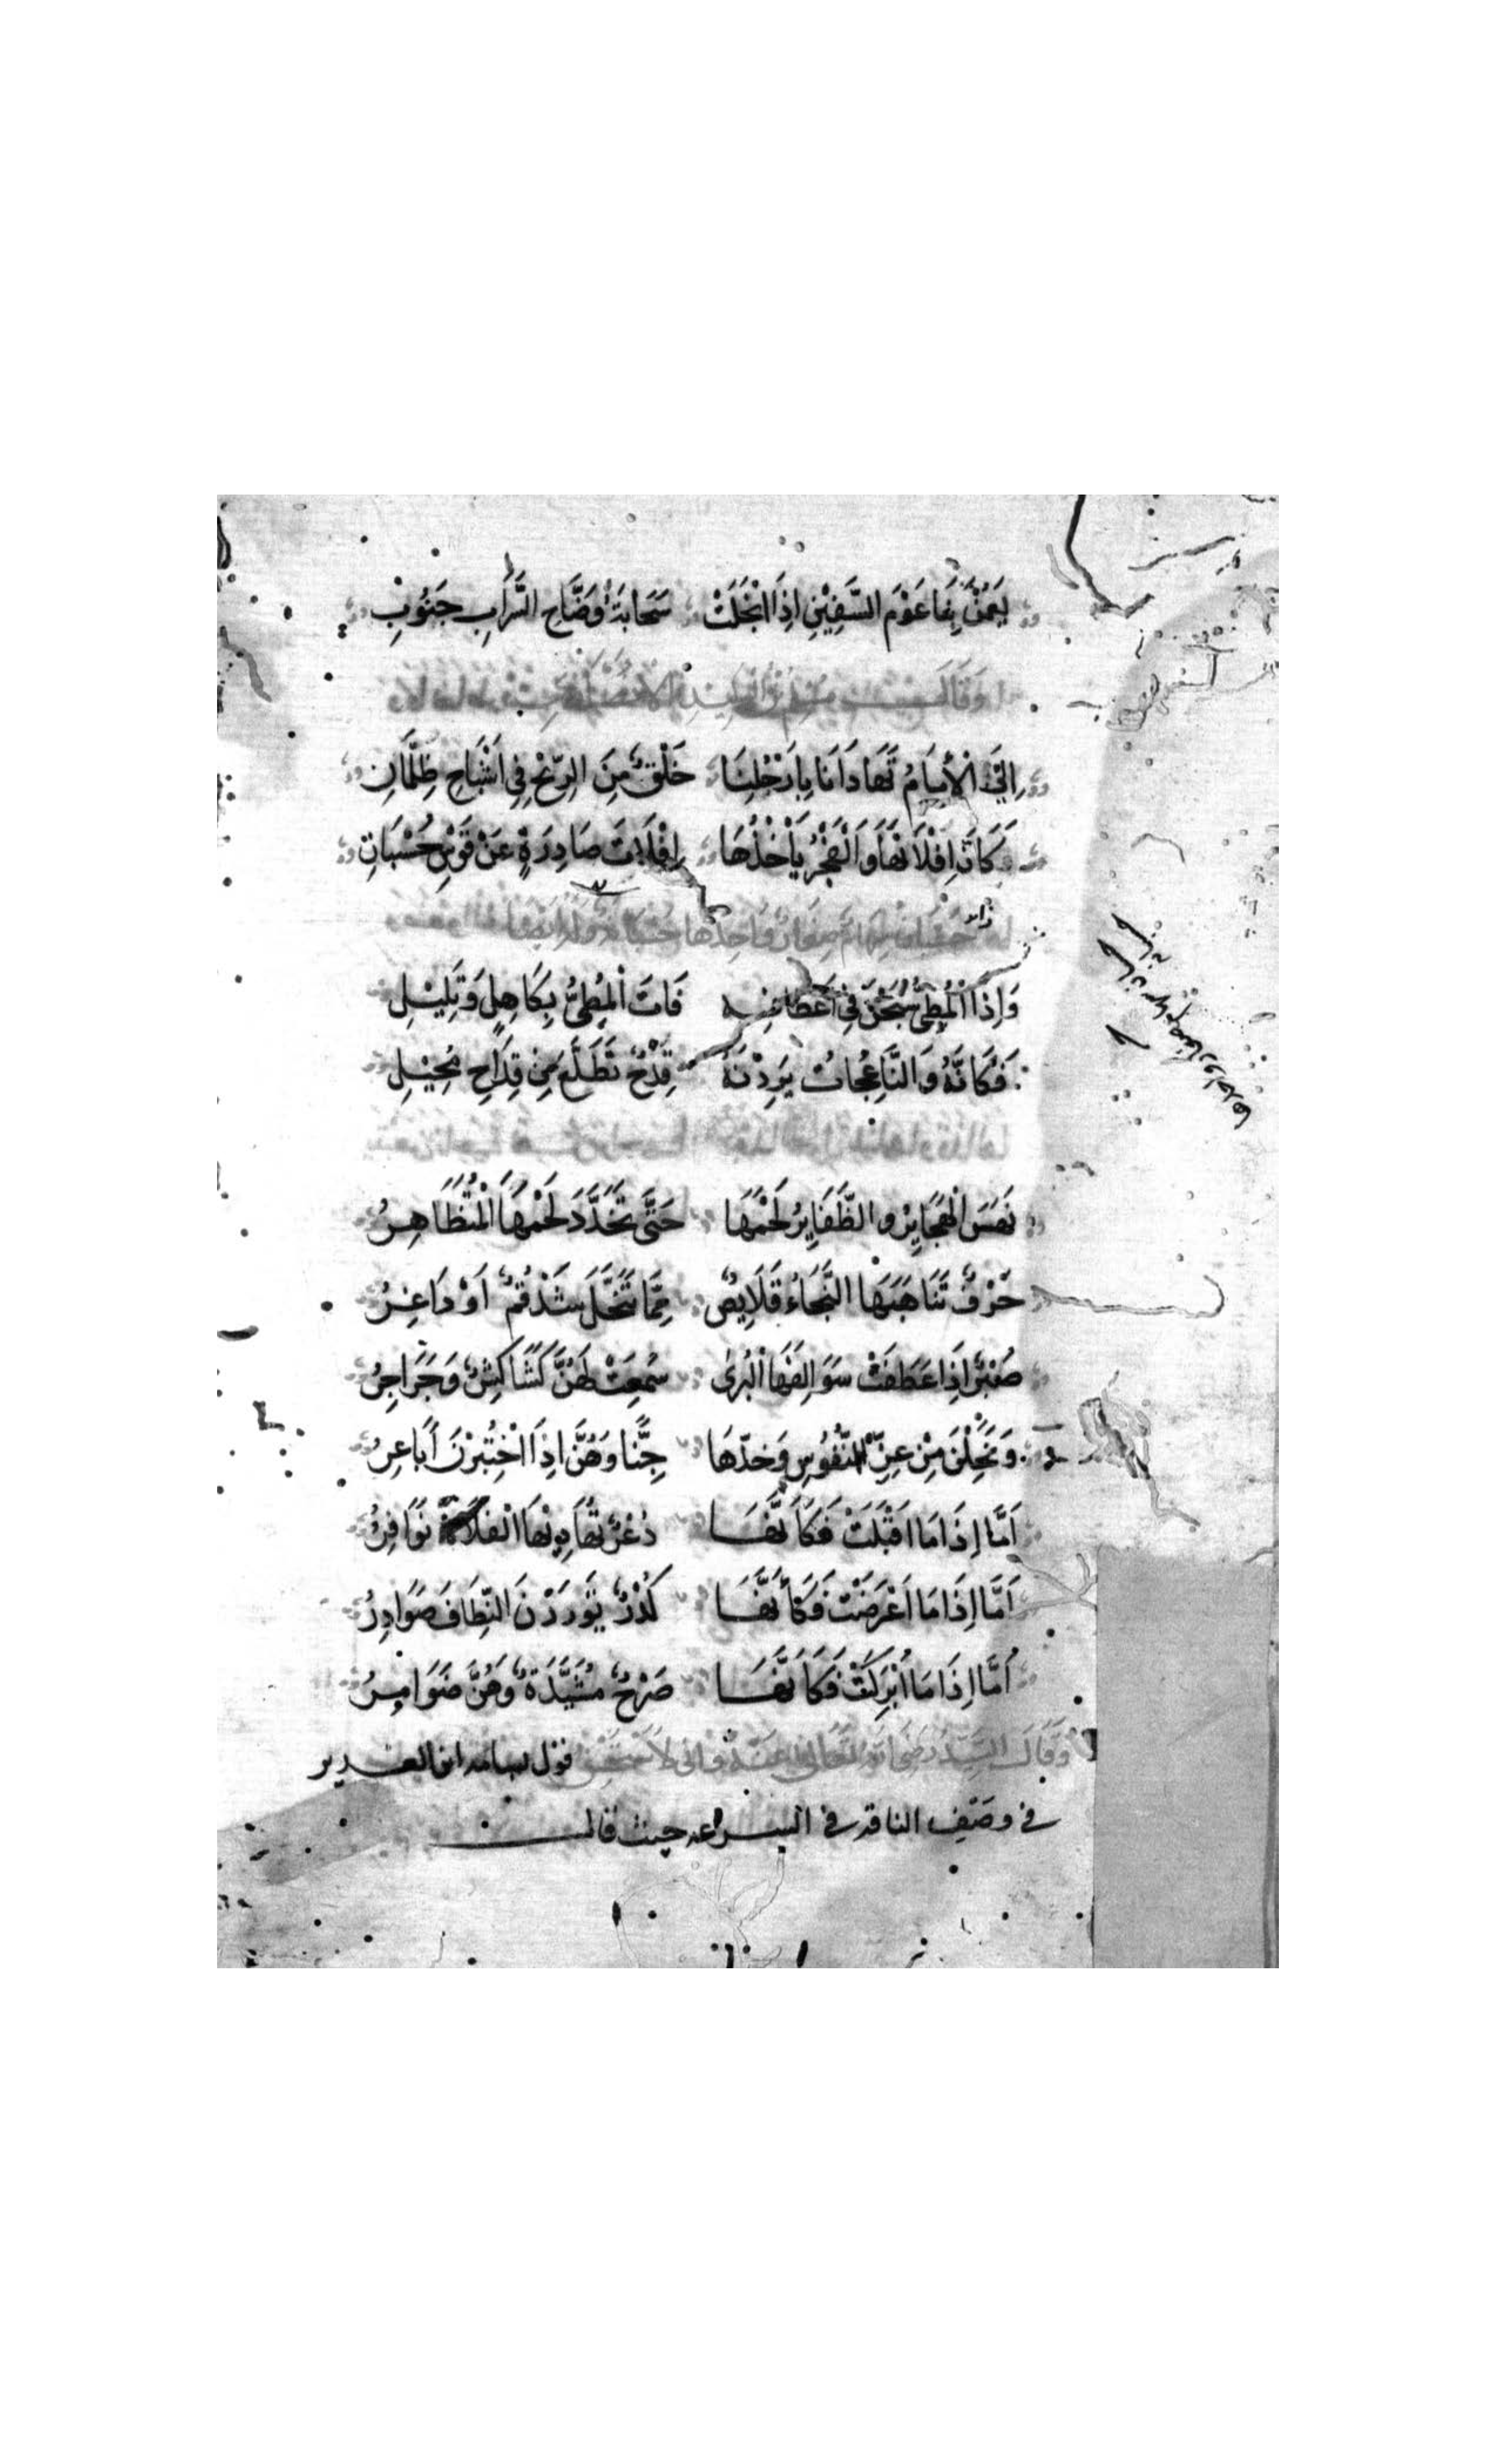 يَعُمْنَ بِهَا عَوْمَ السَّفِيْنِ اِذَا انْجَلَتْ سَحَابَةُ وَضَّاحِ السَّرَابِ جَنُوْبِ
وَقَالَ مُسْلِمُ بْنُ الْوَلِيْدِ الْاَنْصَارِيُّ
اِلَى الْاِمَامِ تَهَادَانَا بِاَرْجُلِنَا خَلْقٌ مِنَ الرِّيْحِ فِي اَشْبَاحِ ظِلْمَانِ
كَاَنَّ اِفْلَاتَهَا وَالْفَجْرُ يَأْخُذُهَا اِفْلَاتُ صَادِرَةٍ عَنْ قَوْسِ حُسْبَانِ
حسبان سهام صغار واحدها حسبانة وله ايضا
وَاِذَا الْمَطِيُّ سَبَحْنَ فِي اَعْطَافِهِ فَاتَ الْمَطِيُّ بِكَاهِلٍ وَتَلِيْلِ
فَكَاَنَّهُ وَالنَّاعِجَاتُ يَرِدْنَهُ قِدْحٌ تَطَلَّعَ مِنْ قِدَاحِ مُجِيْلِ
نَهَسَ الْهَجَايِرُ وَالظَّفَايِرُ لَحْمَهَا حَتَّى تَخَدَّدَ لَحْمُهَا الْمُتَظَاهِرُ
حَرْفٌ تَنَاهَبَهَا النَّجَاءُ قَلَايِصٌ مِمَّا تَنَخَّلَ شَذْقَمٌ اَوْ دَاعِرُ
صُعْبٌ اِذَا عَطَفَتْ سَوَالِفَهَا الْبُرَى سُمِعَتْ لَهُنَّ كَشَاكِشٌ وَجَرَاجِرُ
وَتَخِلْنَ مِنْ عِزِّ النُّفُوسِ وَحَدِّهَا جِنًّا وَهُنَّ اِذَا اخْتُبِرْنَ اَبَاعِرُ
اَمَّا اِذَا مَا اَقْبَلَتْ فَكَاَنَّهَا ذُعْرٌ تَهَادِيْهَا الْفَلَاةُ نَوَافِرُ
اَمَّا اِذَا مَا اَعْرَضَتْ فَكَأَنَّهَا كُدْرٌ تَوَرَّدْنَ النِّطَافَ صَوَادِرُ
اَمَّا اِذَا مَا اُبْرِكَتْ فَكَاَنَّهَا صَرْحٌ مُشَيَّدَةٌ وَهُنَّ ضَوَامِرُ
وَقَالَ السَّيِّدُ رَضِيَ اللهُ تَعَالَى عَنْهُ وَاِنِّي لَاَسْتَحْسِنُ قول بشامه ابن الغدير
في وصف الناقه في السرعه حيث قالـــــ